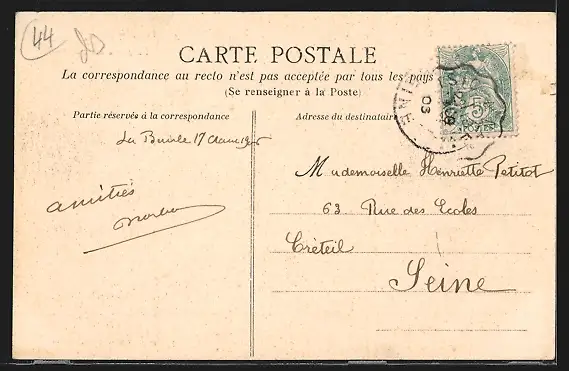 44
CARTE POSTALE
La correspondance au recto n'est pas acceptée par tous les pays
(Se renseigner à la Poste)
Partie réservée à la correspondance
Adresse du destinataire
La 17
amitiés
Mademoiselle Henriette Petitot
63 Rue des Ecoles
Créteil
Seine
5
POSTES
03